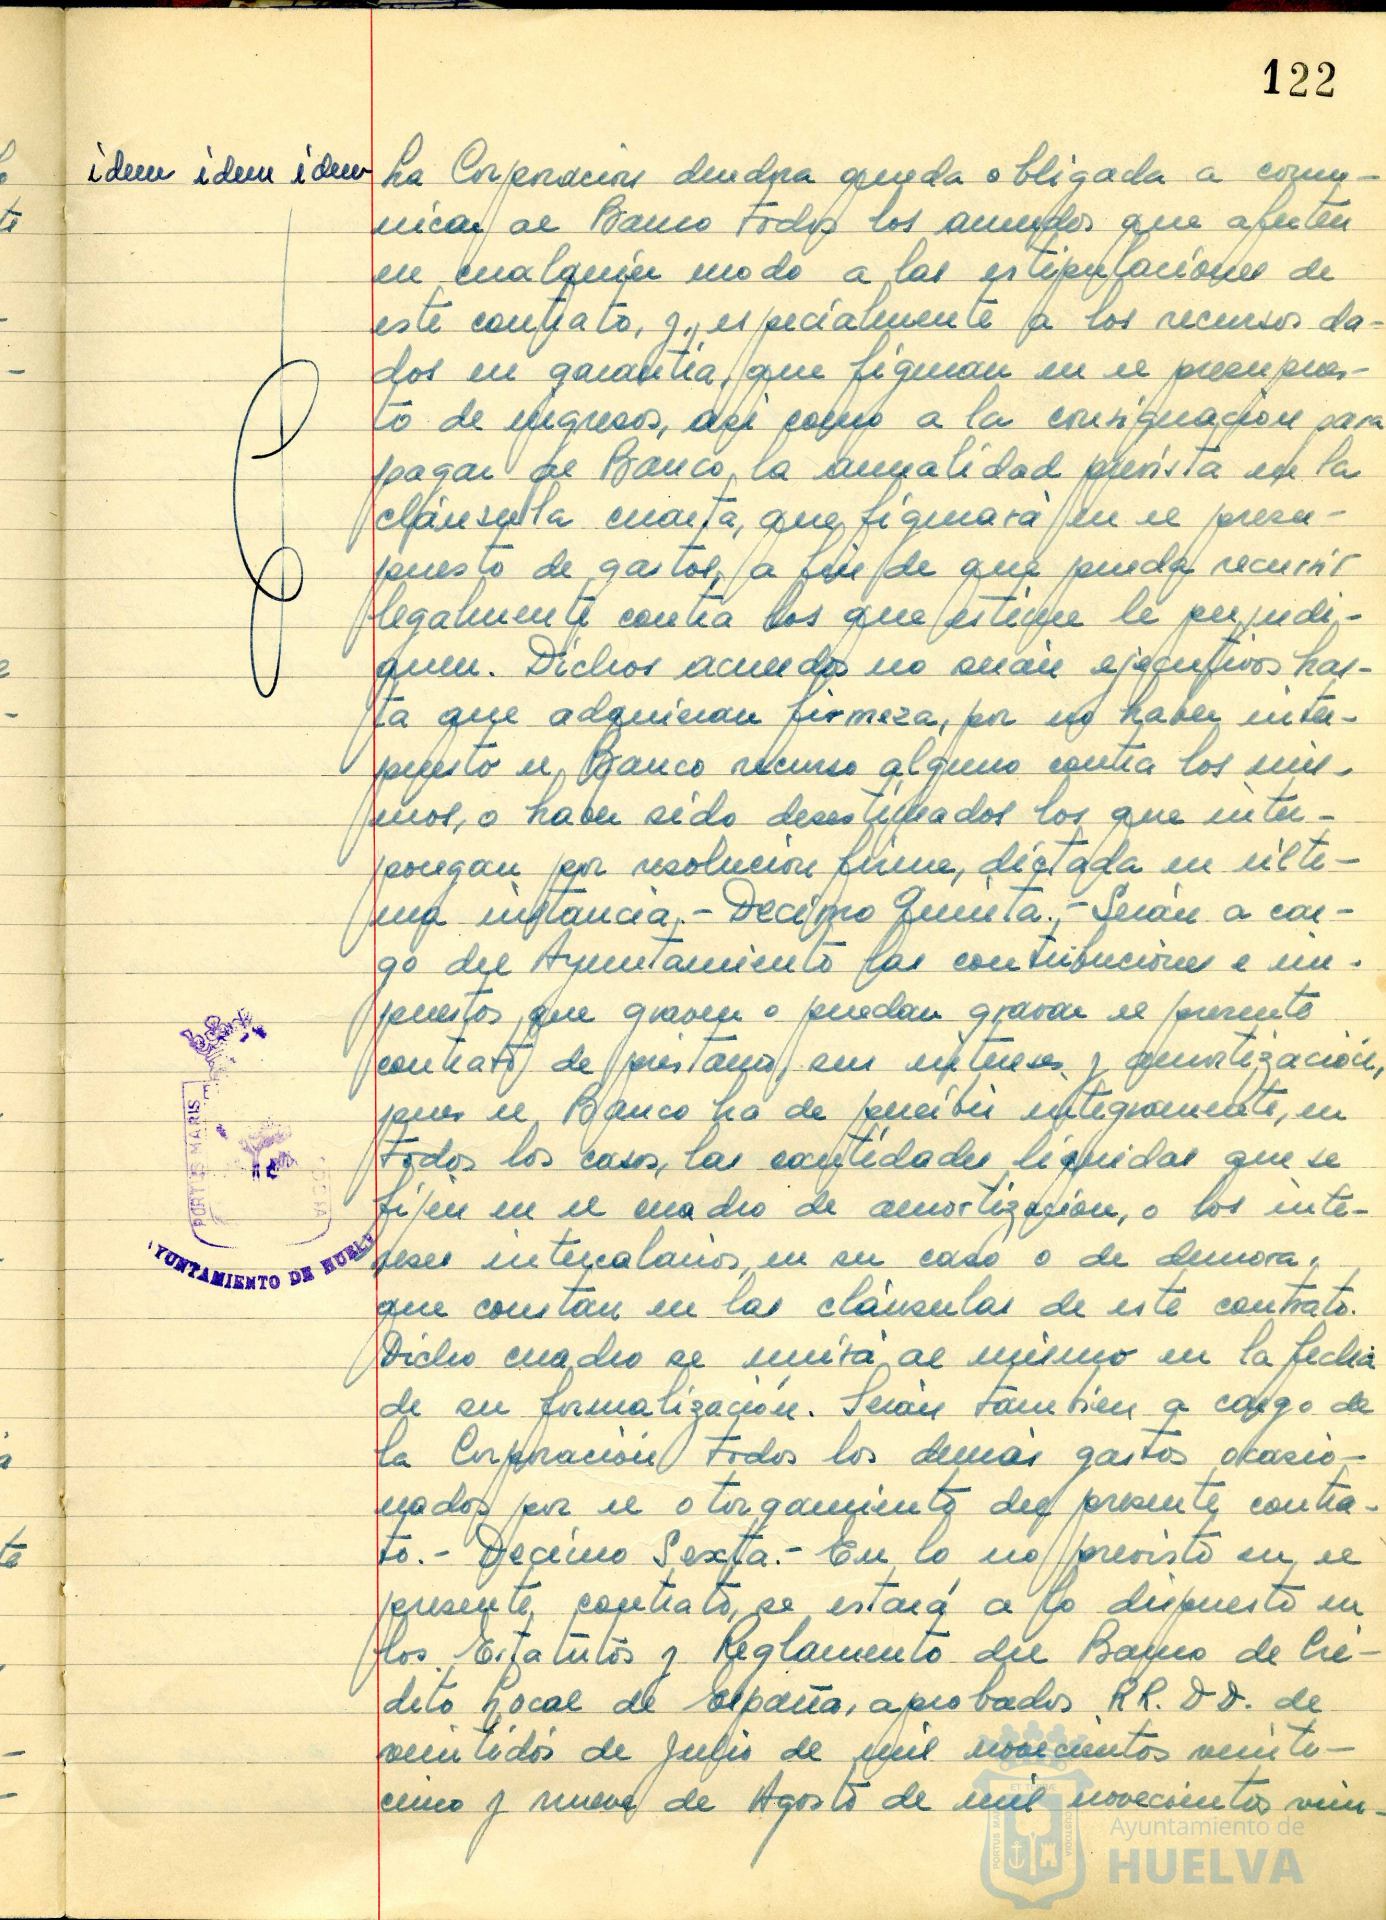 122
idem idem idem
La Corporación deudora queda obligada a comu-
nicar al Banco todos los acuerdos que afecten
en cualquier modo a las estipulaciones de
este contrato, y, especialmente a los recursos da-
dos en garantía, que figuran en el presupues-
to de ingresos, así como a la consignación para
pagar al Banco la anualidad prevista en la
cláusula cuarta, que figurará en el presu-
puesto de gastos, a fin de que pueda recurrir
legalmente contra los que estime le perjudi-
quen. Dichos acuerdos no serán ejecutivos has-
ta que adquieran firmeza, por no haber inter-
puesto el Banco recurso alguno contra los mis-
mos, o haber sido desestimados los que inter-
pongan por resolución firme, dictada en últi-
ma instancia.- Decimo Quinta.- Serán a car-
go del Ayuntamiento las contribuciones e im-
puestos que graven o puedan gravar el presente
contrato de préstamo, sus intereses y amortización,
pues el Banco ha de percibir integramente, en
todos los casos, las cantidades líquidas que se
fijen en el cuadro de amortización, o los inte-
reses intercalarios, en su caso o de demora,
que constan en las cláusulas de este contrato.
Dicho cuadro se unirá al mismo en la fecha
de su formalización. Serán también a cargo de
la Corporación todos los demás gastos ocasio-
nados por el otorgamiento del presente contra-
to.- Decimo Sexta.- En lo no previsto en el
presente contrato, se estará a lo dispuesto en
los Estatutos y Reglamento del Banco de Cré-
dito Local de España, aprobados RR. DD. de
veintidós de Julio de mil novecientos veinti-
cinco y nueve de Agosto de mil novecientos vein-
PORTUS MARIS
AYUNTAMIENTO DE HUELVA
PORTUS MARIS ET TERRAE CUSTODIA
Ayuntamiento de
HUELVA